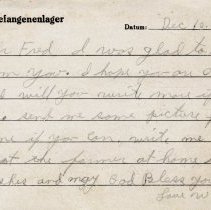 efangenenlager
Datum: Dec 12.
Fred I was glad to
m you. I hope you are
will you write more if
send me some picture
me if you can, write me
at the farmer at home
shes and may God Bless you
Love